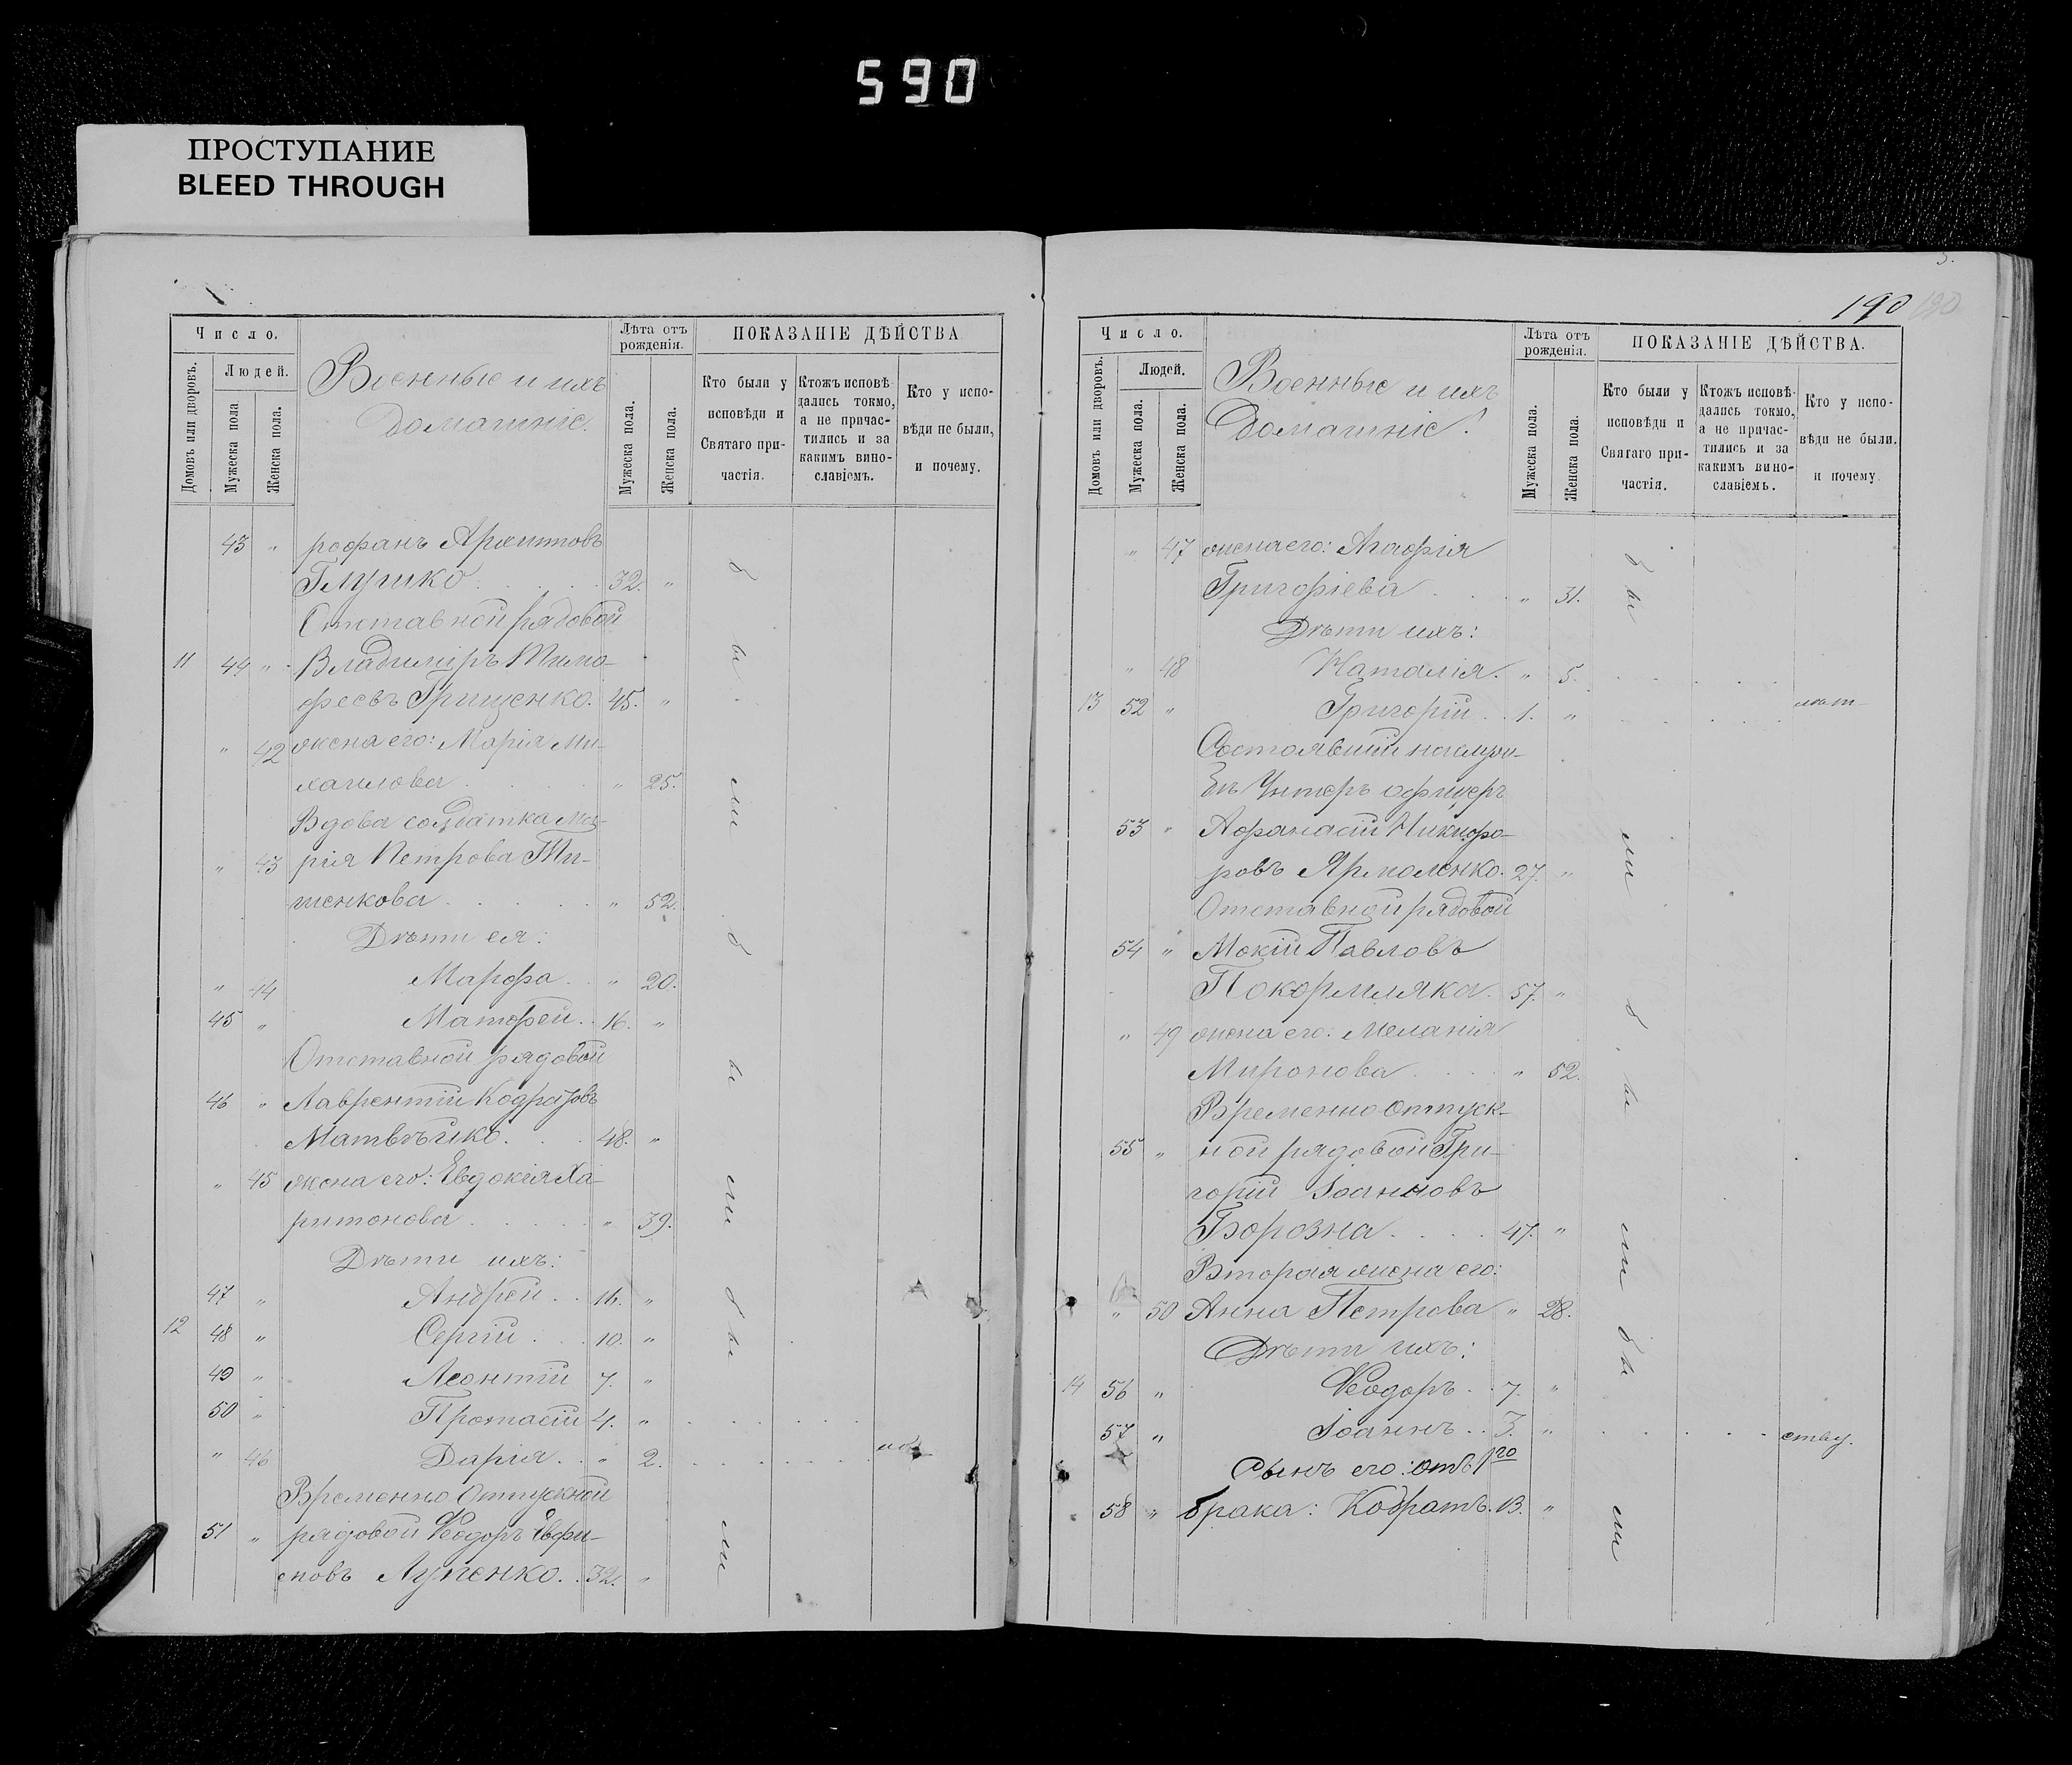 590
ПРОСТУПАНИЕ
BLEED THROUGH
Число.
Домовъ или дворовъ.
Людей.
Мужеска пола
Женска пола.
Военные и ихъ
домашніе.
Лѣта отъ рожденія.
Мужеска пола.
Женска пола.
ПОКАЗАНІЕ ДѢЙСТВА
Кто были у исповѣди и Святаго причастія.
Ктожъ исповѣдались токмо, а не причастились и за какимъ винославіемъ.
Кто у исповѣди не были, и почему.
43 " рофанъ Архиповъ
Глушко 32. "
Отставной рядовой
11 44 " Владиміръ Тимо-
феевъ Грищенко. 45. "
" 42 жена его: Марія Ми-
хаилова " 25.
Вдова солдатка Ма-
" 43 рія Петрова Ти-
шенкова " 52.
Дѣти ея:
" 44 Марфа " 20.
45 " Матфей 16. "
Отставной рядовой
46 " Лаврентій Кодратовъ
Матвѣйко 48. "
" 45 жена его: Евдокія Ха-
ритонова " 39.
Дѣти ихъ:
47 " Андрей 16. "
12 48 " Сергій 10. "
49 " Леонтій 7. "
50 " Протасій 4. "
" 46 Дарія " 2.
Временно Отпускной
51 " рядовой Ѳеодоръ Евфи-
мовъ Лупенко 32. "
бы ли бы ли бы ли
190 190
Число.
Домовъ или дворовъ.
Людей.
Мужеска пола.
Женска пола.
Военные и ихъ
Домашніе.
Лѣта отъ рожденія.
Мужеска пола.
Женска пола.
ПОКАЗАНІЕ ДѢЙСТВА.
Кто были у исповѣди и Святаго причастія.
Ктожъ исповѣдались токмо, а не причастились и за какимъ винославіемъ.
Кто у исповѣди не были. и почему
" 47 жена его: Агафія
Григоріева " 31.
Дѣти ихъ:
" 48 Наталія. " 5.
13 52 " Григорій 1. " мат-
Состоявшій на служ-
бѣ Унтеръ офицеръ
53 " Афанасій Никифо-
ровъ Ярмоленко. 27. "
Отставной рядовой
54 " Мокій Павловъ
Покормляка. 57. "
" 49 жена его: Меланія
Миронова " 52.
Временно Отпуск-
55 " ной рядовой Гри-
горій Іоанновъ
Борозна 47. "
Вторая жена его:
" 50 Анна Петрова " 28.
Дѣти ихъ:
14 56 " Ѳеодоръ 7. "
57 " Іоаннъ 3. " ству.
Сынъ его: отъ 1го
58 " брака: Кодратъ. 13. "
бы ли бы ли бы ли